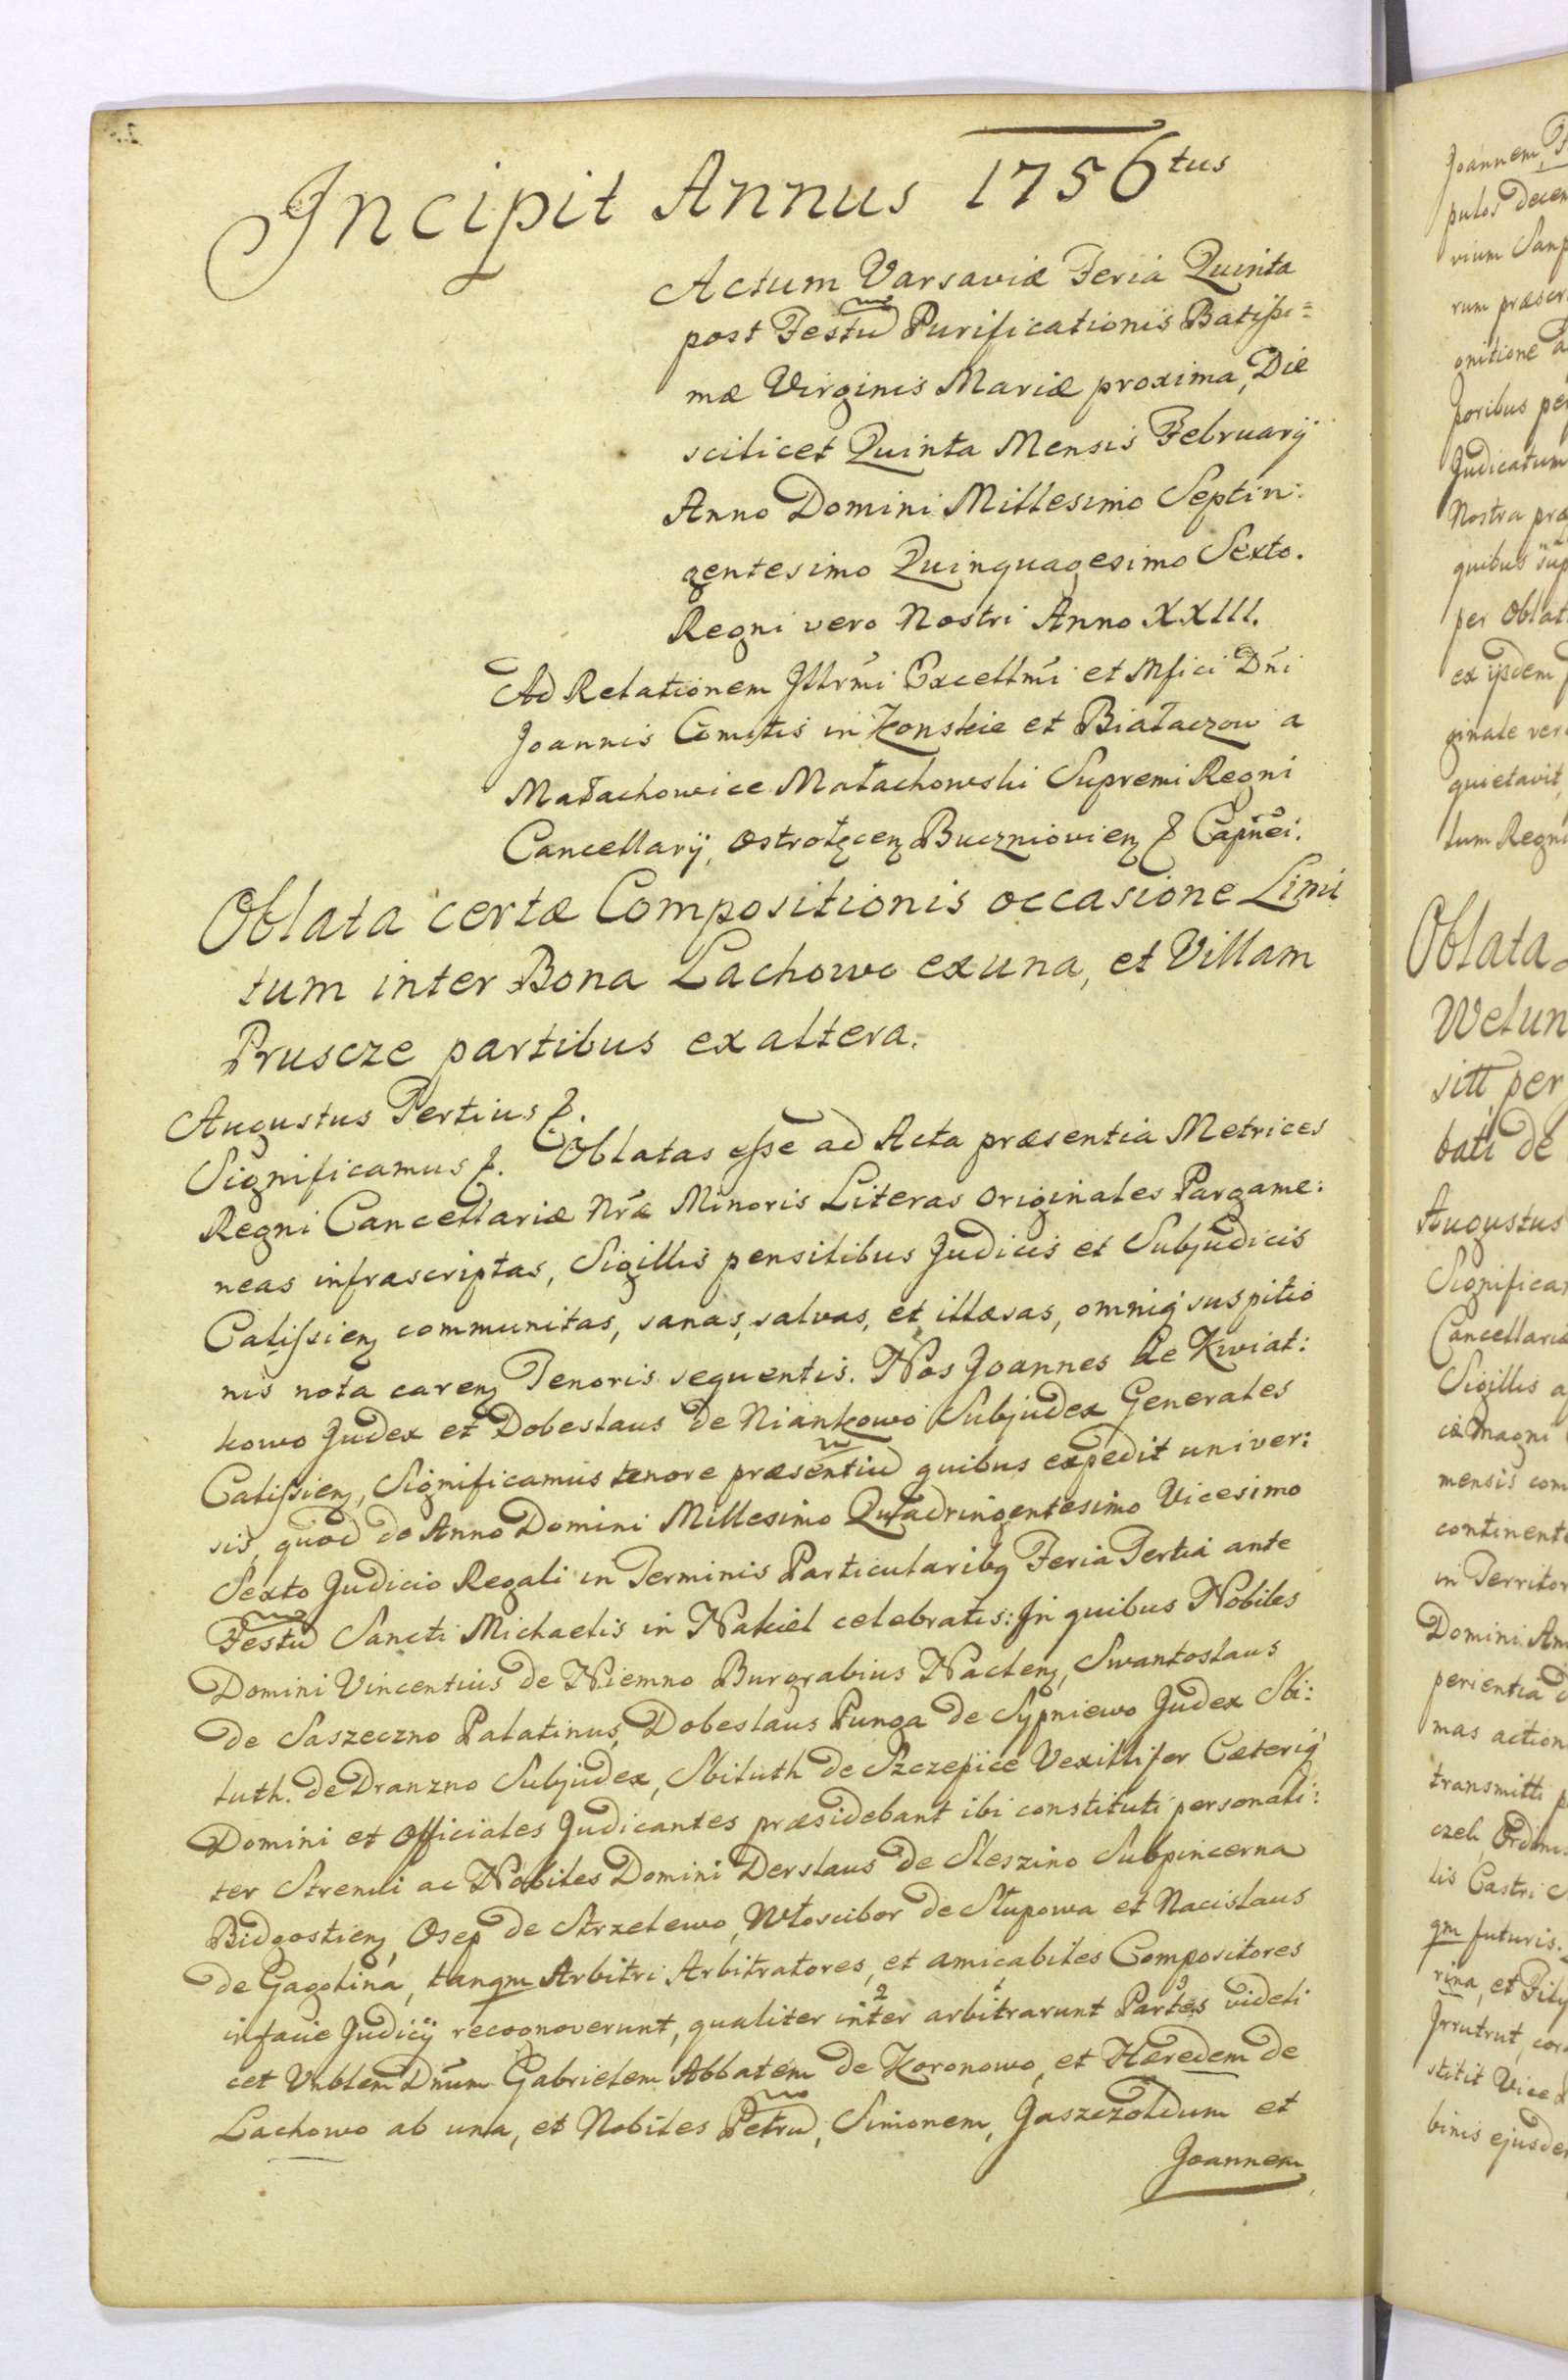 Incipit Annus 1756tus
Actum Varsaviæ Feria Quinta
post Festu Purificationis Batissi=
mæ Virginis Mariæ proxima, Die
scilicet Quinta Mensis Februarij
Anno Domini Millesimo Septin:
gentesimo Quinquagesimo Sexto.
Regni vero Nostri Anno XXIII.
Ad Relationem Illrmi Excellmi et Mfici Dni
Joannis Comitis in Konskie et Białaczow a
Małachowice Małachowski Supremi Regni
Cancellarij, Ostrołęcen Buczniovien & Capnei.
Oblata certæ Compositionis occasione Limi
tum inter Bona Lachowo ex una, et Villam
Pruscze partibus ex altera.
Augustus Tertius &.
Significamus &. Oblatas esse ad Acta præsentia Metrices
Regni Cancellariæ Nræ Minoris Literas Originales Pargame:
neas infrascriptas, Sigillis pensilibus Judicis et Subjudicis
Calissien communitas, sanas, salvas, et illæsas, omniq suspitio
nis nota caren Tenoris sequentis. Nos Joannes de Kwiat:
kowo Judex et Dobeslaus de Niankowo Subjudex Generales
Calissien, Significamus tenore præsentiu quibus expedit univer:
sis, quod de Anno Domini Millesimo Quadringentesimo Vicesimo
Sexto Judicio Regali in Terminis Particularibq Feria Tertia ante
Festu Sancti Michaelis in Nakiel celebratis: In quibus Nobiles
Domini Vincentius de Niemno Burgrabius Naclen, Swantoslaus
de Saszeczno Palatinus, Dobeslaus Punga de Sypniewo Judex Sbi:
luth. de Dranzno Subjudex, Sbiluth de Szczepice Vexillifer Cæteriq
Domini et Officiales Judicantes præsidebant ibi constituti personali:
ter Strenui ac Nobiles Domini Derslaus de Sleszino Subpincerna
Bidgostien, Osep de Strzelewo, Włoscibor de Słupowa et Nacislaus
de Gagolina, tanqm Arbitri Arbitratores, et amicabiles Compositores
in facie Judicij recognoverunt, qualiter inter arbitrarunt Partes videli
cet Vnblem Dnum Gabrielem Abbatem de Koronowo, et Hæredem de
Lachowo ab una, et Nobiles Petru, Simonem, Jaszczoldum et
Joannem
Joannem
Oblata
Augustus
Cancellaria
Sigillis
mensis
in
Domini
perientia
mas action
transmitti
lis Castri
qm futuris.
rina, et
stitit
per
Judicatum
Nostra
quibus
ginale
quietavit,
tum